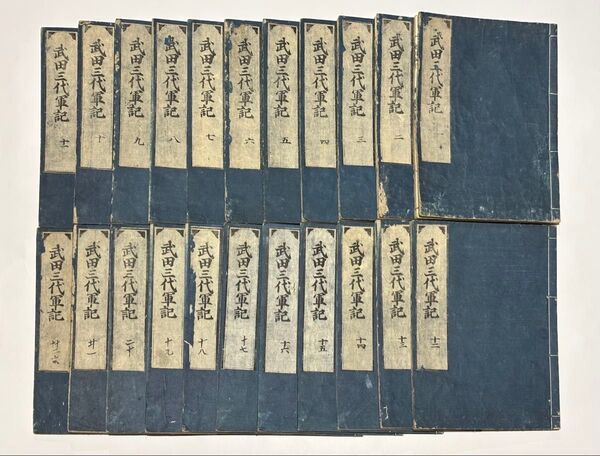 武田三代軍記
武田三代軍記 二
武田三代軍記 三
武田三代軍記 四
武田三代軍記 五
武田三代軍記 六
武田三代軍記 七
武田三代軍記 八
武田三代軍記 九
武田三代軍記 十
武田三代軍記 十一
武田三代軍記 十二
武田三代軍記 十三
武田三代軍記 十四
武田三代軍記 十五
武田三代軍記 十六
武田三代軍記 十七
武田三代軍記 十八
武田三代軍記 十九
武田三代軍記 二十
武田三代軍記 廿一
武田三代軍記 廿二